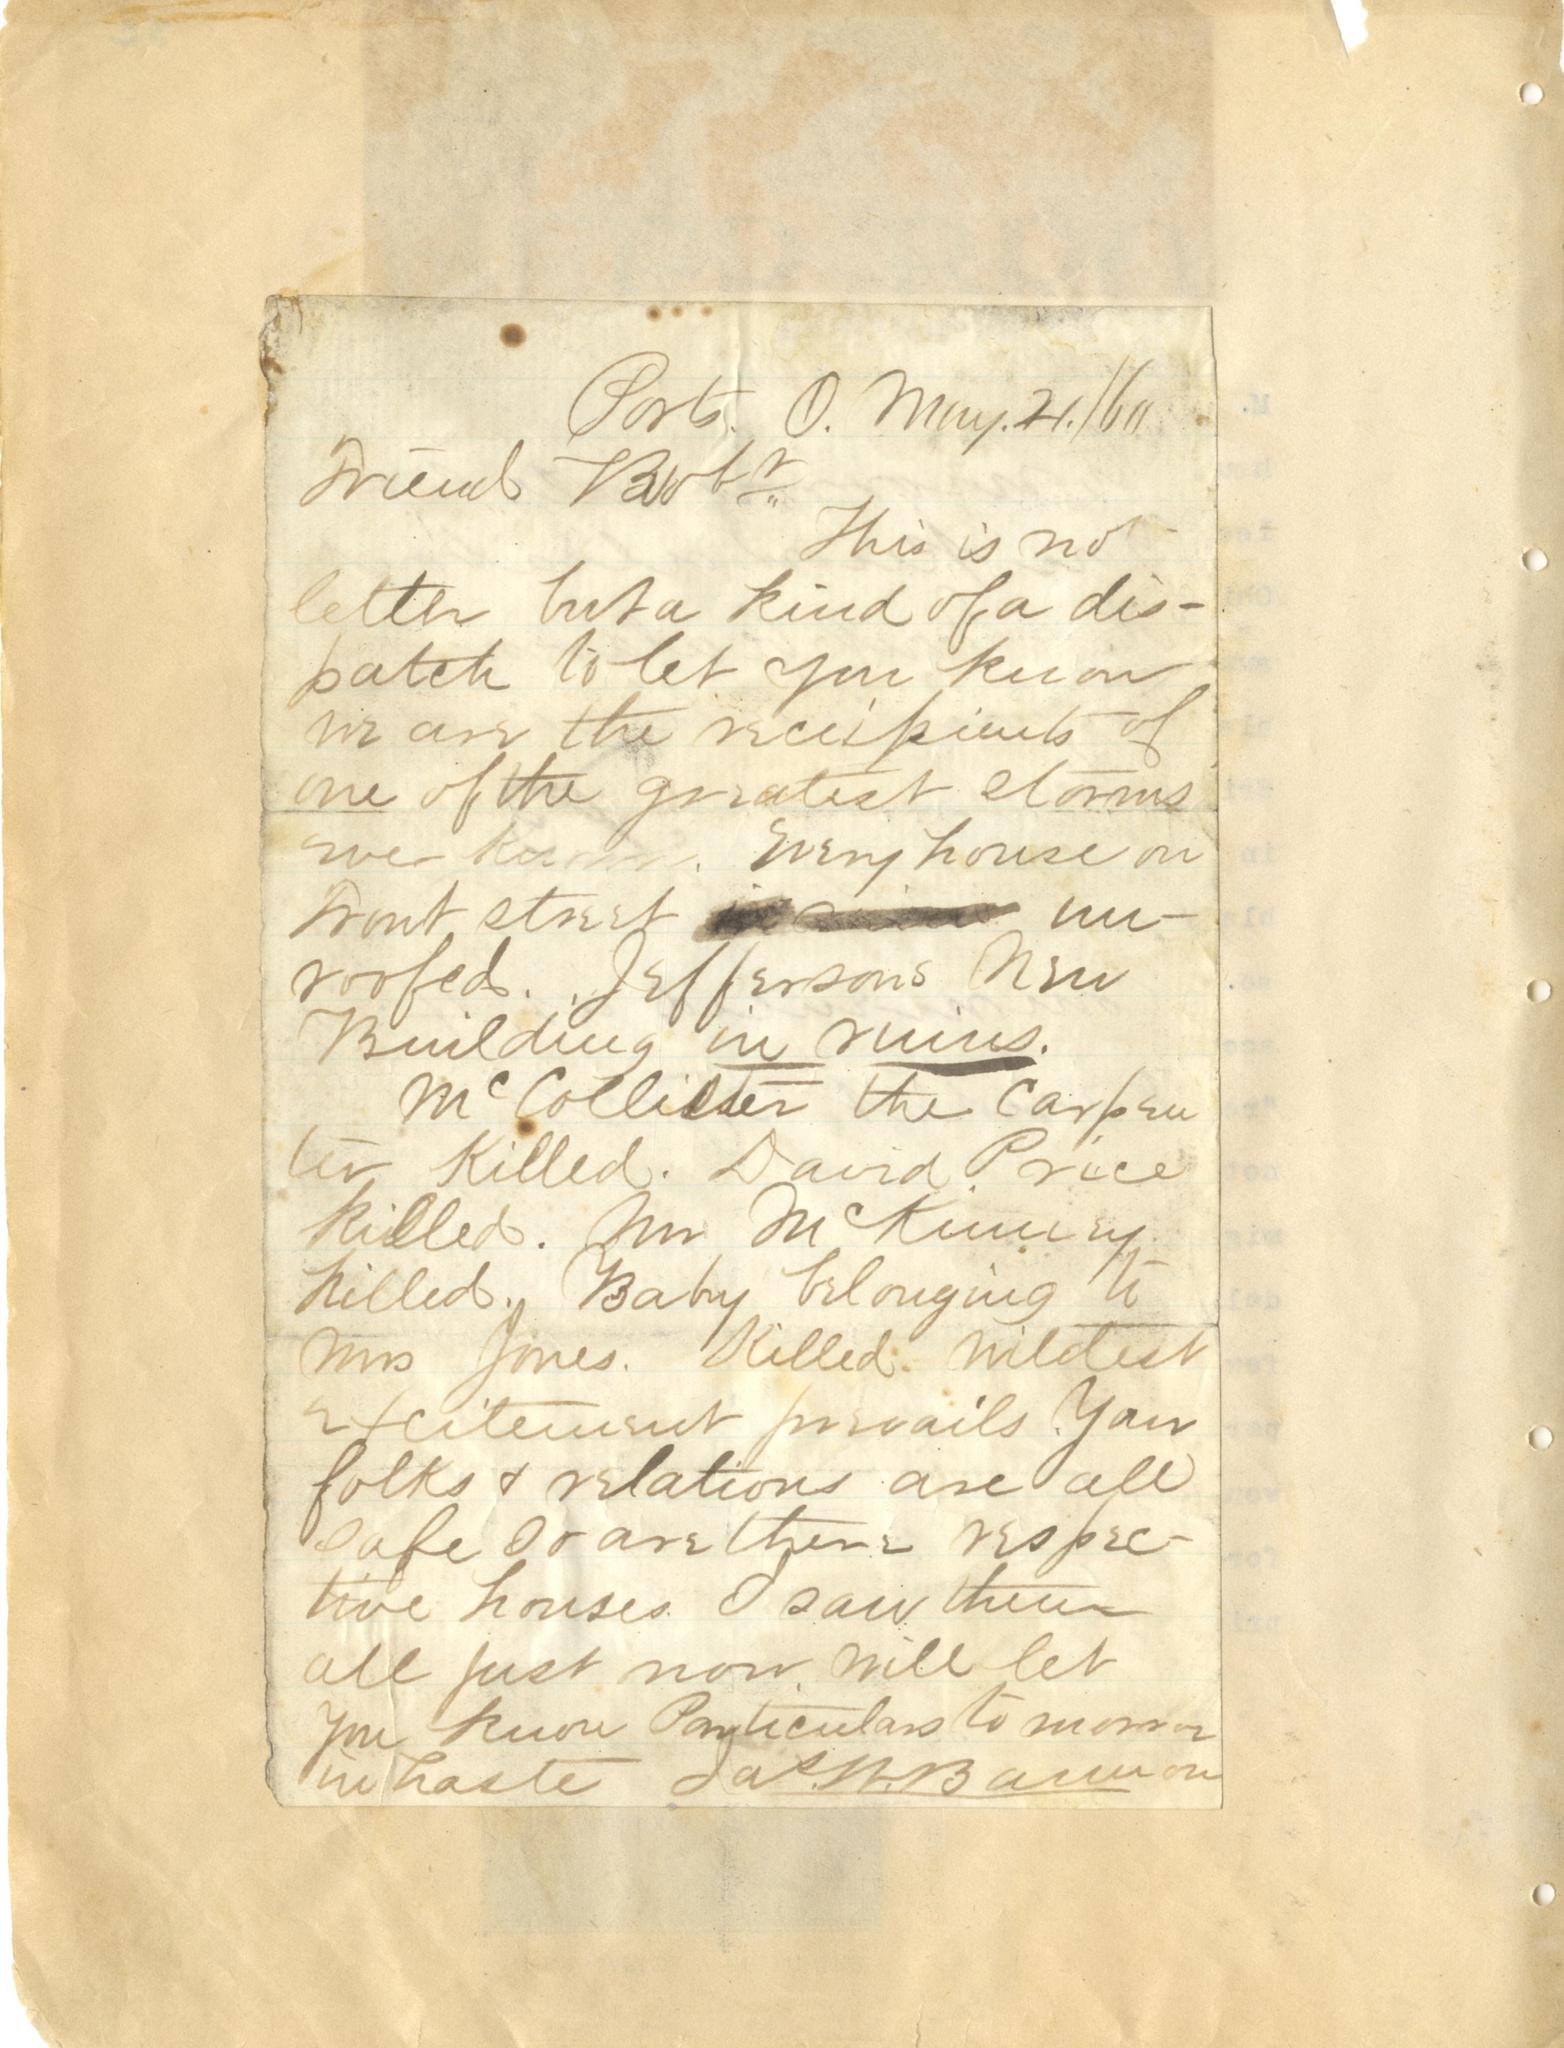 Ports. O. May. 21./60
Friend Robt
This is no
letter but a kind of a dis-
patch to let you know
we are the recipients of
one of the greatest storms
ever known. Every house on
Front street un-
roofed. Jeffersons New
Building in ruins.
McCollister the Carpen
ter Killed. David Price
killed. Mr McKinney
killed. Baby belonging to
Mrs Jones. Killed. Wildest
excitement prevails. Your
folks & relations are all
safe so are there respec-
tive houses I saw them
all just now. Will let
you know Particulars to morrow
in haste Jas. W. Bannon